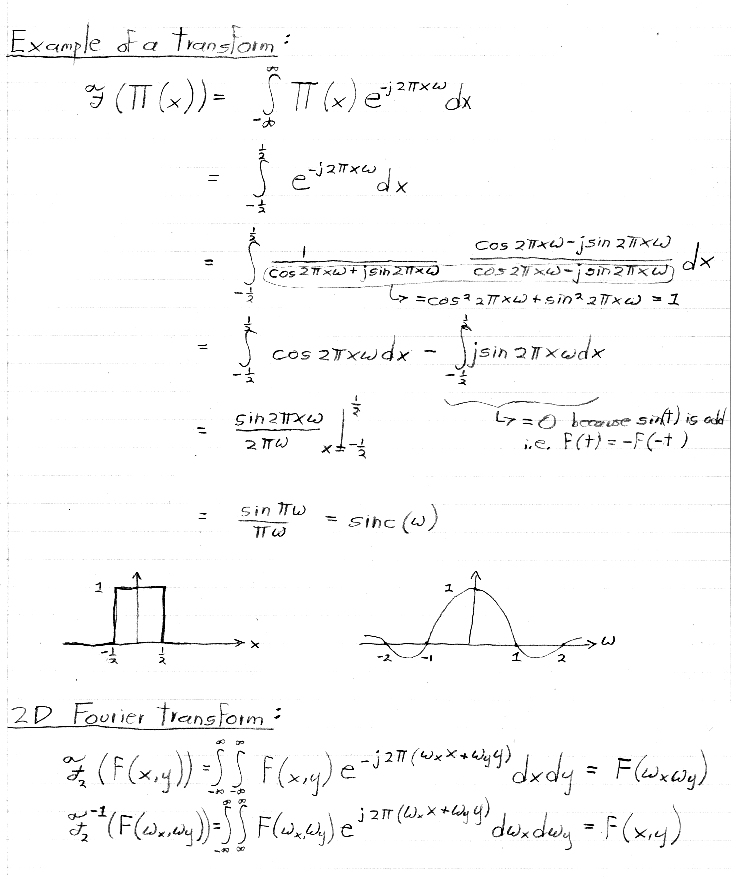 Example of a transform:
ℱ(Π(x)) = ∫_{-∞}^{∞} Π(x) e^{-j2πxω} dx
= ∫_{-1/2}^{1/2} e^{-j2πxω} dx
= ∫_{-1/2}^{1/2} 1/(cos 2πxω + j sin 2πxω) (cos 2πxω - j sin 2πxω)/(cos 2πxω - j sin 2πxω) dx
↳ = cos² 2πxω + sin² 2πxω = 1
= ∫_{-1/2}^{1/2} cos 2πxω dx - ∫_{-1/2}^{1/2} j sin 2πxω dx
= sin 2πxω / 2πω |_{x=-1/2}^{1/2} ↳ = 0 because sin(t) is odd
i.e. F(t) = -F(-t)
= sin πω / πω = sinc(ω)
1 -1/2 1/2 x
1 -2 -1 1 2 ω
2D Fourier transform:
ℱ₂(F(x,y)) = ∫_{-∞}^{∞} ∫_{-∞}^{∞} F(x,y) e^{-j2π(ωₓx+ω_y y)} dxdy = F(ωₓω_y)
ℱ₂⁻¹(F(ωₓ,ω_y)) = ∫_{-∞}^{∞} ∫_{-∞}^{∞} F(ωₓ,ω_y) e^{j2π(ωₓx+ω_y y)} dωₓdω_y = F(x,y)